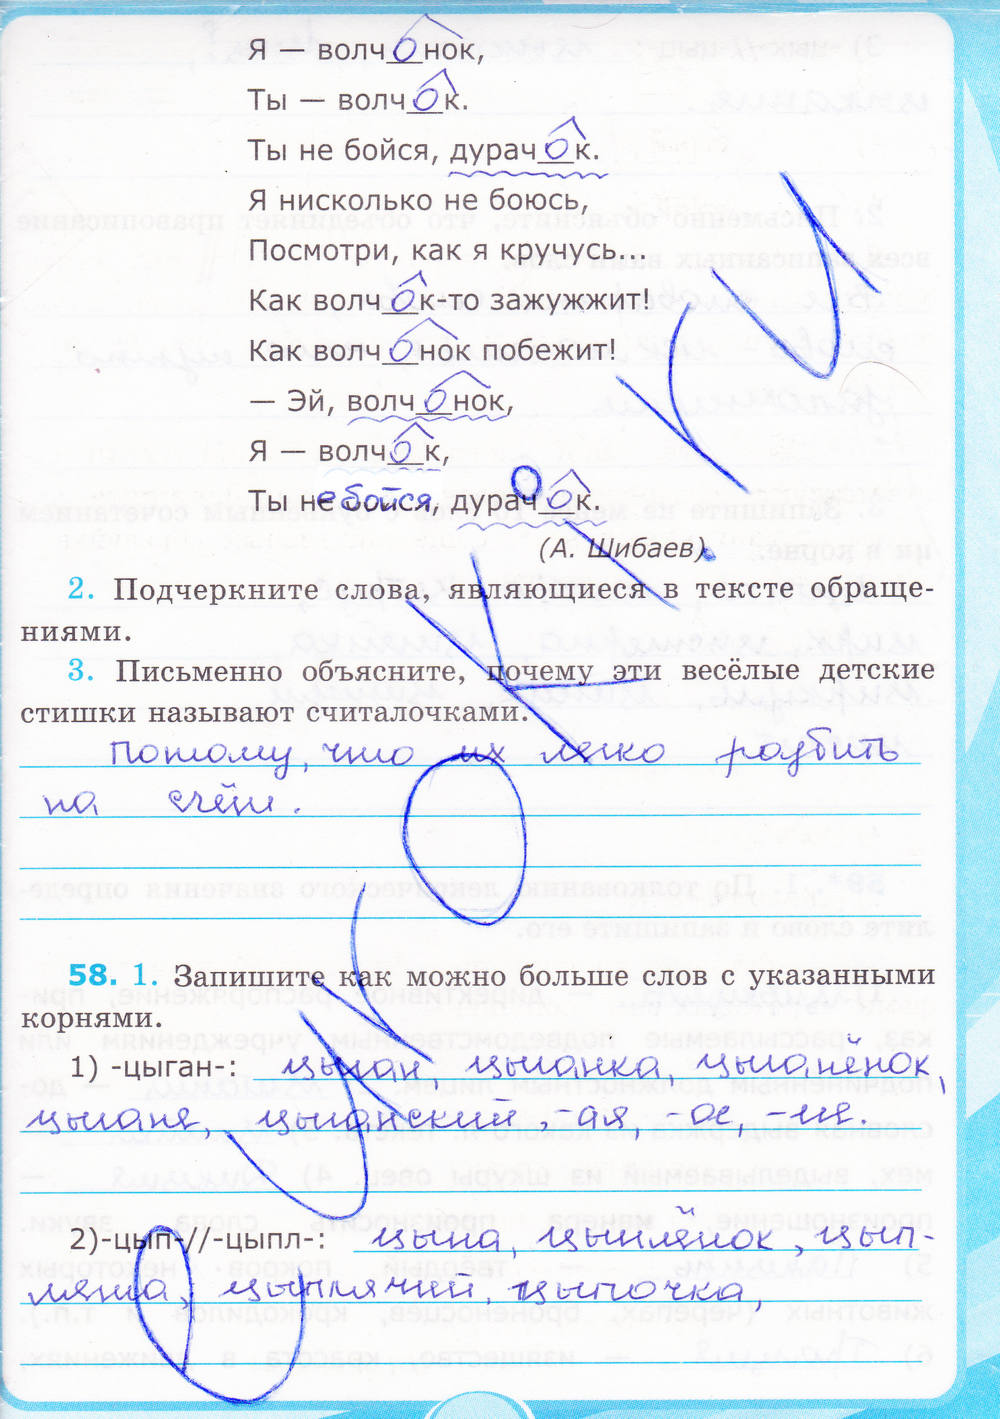 Я — волчонок,
Ты — волчок.
Ты не бойся, дурачок.
Я нисколько не боюсь,
Посмотри, как я кручусь...
Как волчок-то зажужжит!
Как волчонок побежит!
— Эй, волчонок,
Я — волчок,
Ты не бойся, дурачок.
(А. Шибаев).
2. Подчеркните слова, являющиеся в тексте обраще-
ниями.
3. Письменно объясните, почему эти весёлые детские
стишки называют считалочками.
Потому, что их легко разбить
на счёт.
58. 1. Запишите как можно больше слов с указанными
корнями.
1) -цыган-: цыган, цыганка, цыганёнок,
цыгане, цыганский, -ая, -ое, -ие.
2)-цып-//-цыпл-: цыпа, цыплёнок, цып-
лята, цыплячий, цыпочка,